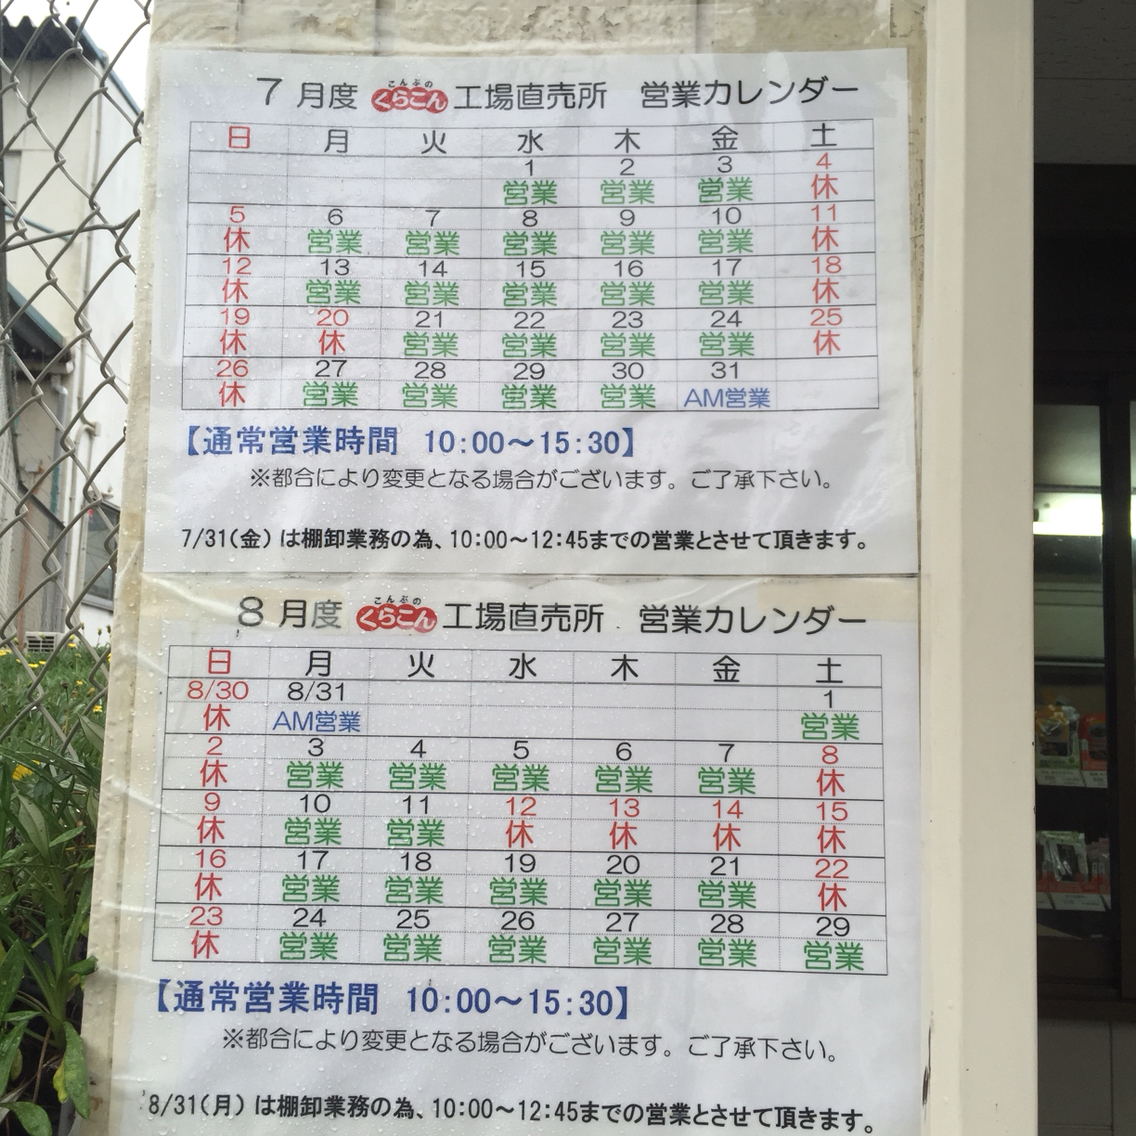 7 月度 こんぶの くらこん 工場直売所 営業カレンダー
日 月 火 水 木 金 土
1 2 3 4
営業 営業 営業 休
5 6 7 8 9 10 11
休 営業 営業 営業 営業 営業 休
12 13 14 15 16 17 18
休 営業 営業 営業 営業 営業 休
19 20 21 22 23 24 25
休 休 営業 営業 営業 営業 休
26 27 28 29 30 31
休 営業 営業 営業 営業 AM営業
【通常営業時間 10:00～15:30】
※都合により変更となる場合がございます。ご了承下さい。
7/31(金) は棚卸業務の為、10:00～12:45までの営業とさせて頂きます。
8 月度 こんぶの くらこん 工場直売所 営業カレンダー
日 月 火 水 木 金 土
8/30 8/31 1
休 AM営業 営業
2 3 4 5 6 7 8
休 営業 営業 営業 営業 営業 休
9 10 11 12 13 14 15
休 営業 営業 休 休 休 休
16 17 18 19 20 21 22
休 営業 営業 営業 営業 営業 休
23 24 25 26 27 28 29
休 営業 営業 営業 営業 営業 営業
【通常営業時間 10:00～15:30】
※都合により変更となる場合がございます。ご了承下さい。
8/31(月) は棚卸業務の為、10:00～12:45までの営業とさせて頂きます。